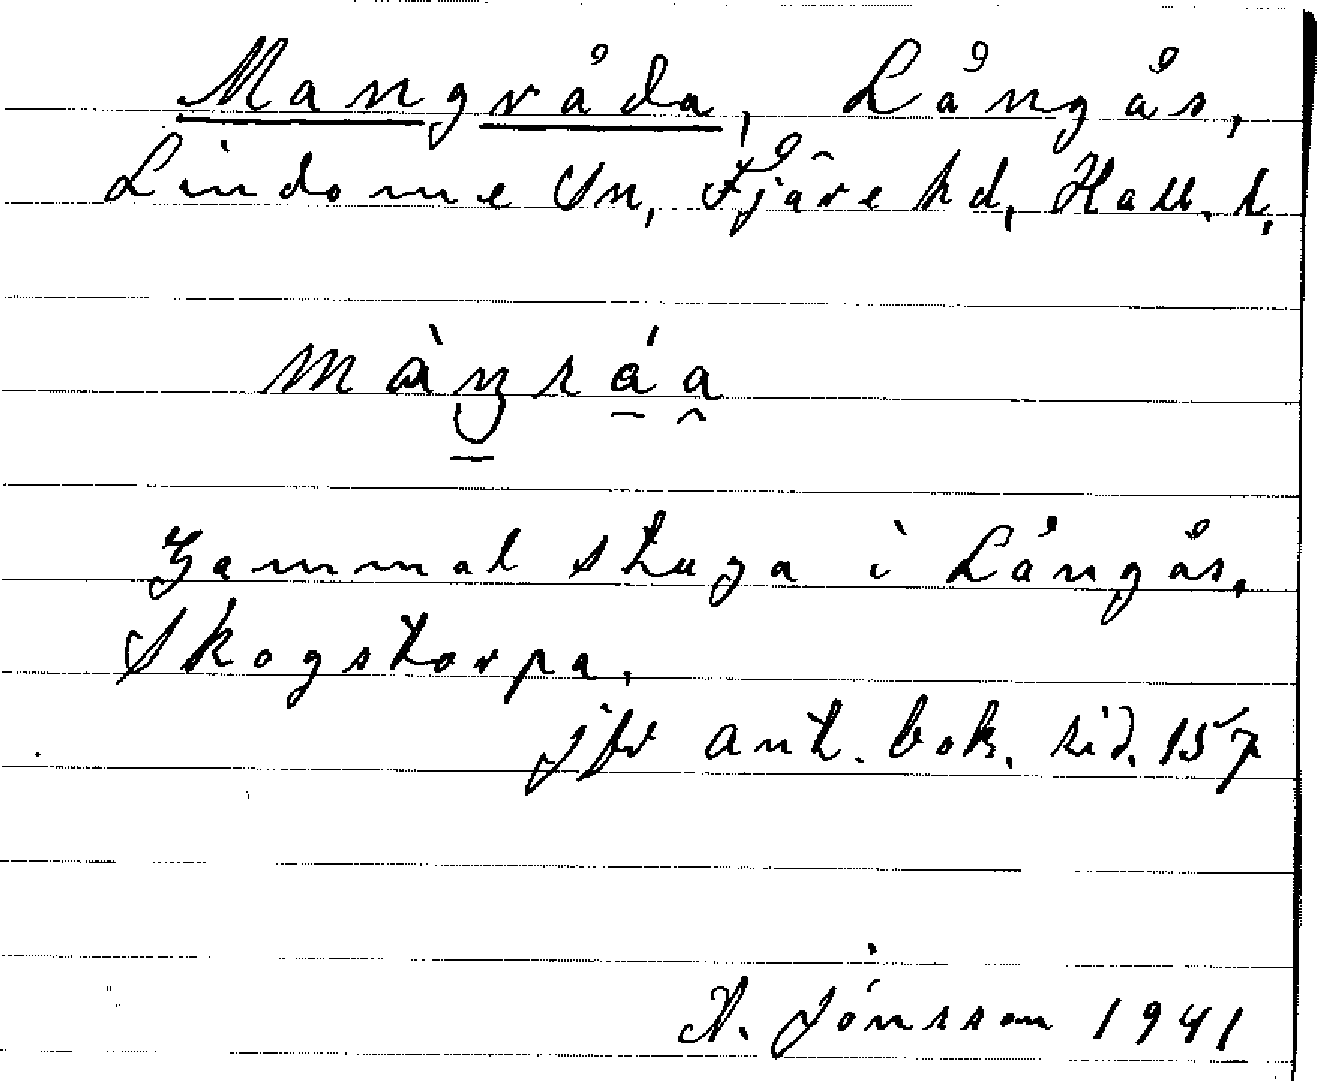 Mangråda, Långås,
Lindome Sn, Fjäre hd, Hall. l.
Gammal stuga i Långås,
Skogstorpa.
jfr ant. bok. sid. 157
A. Jónsson 1941